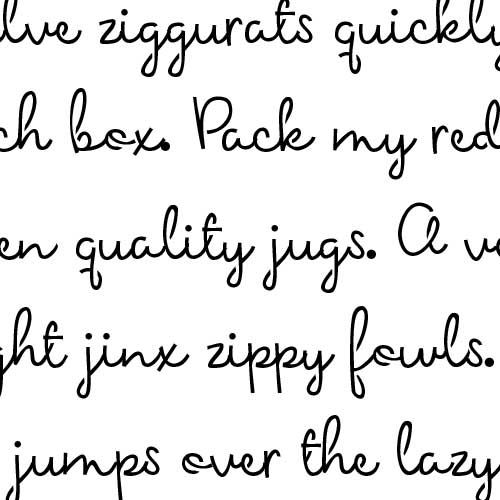 lve ziggurats quickly
ch box. Pack my red
en quality jugs. A ve
ght jinx zippy fowls.
jumps over the lazy